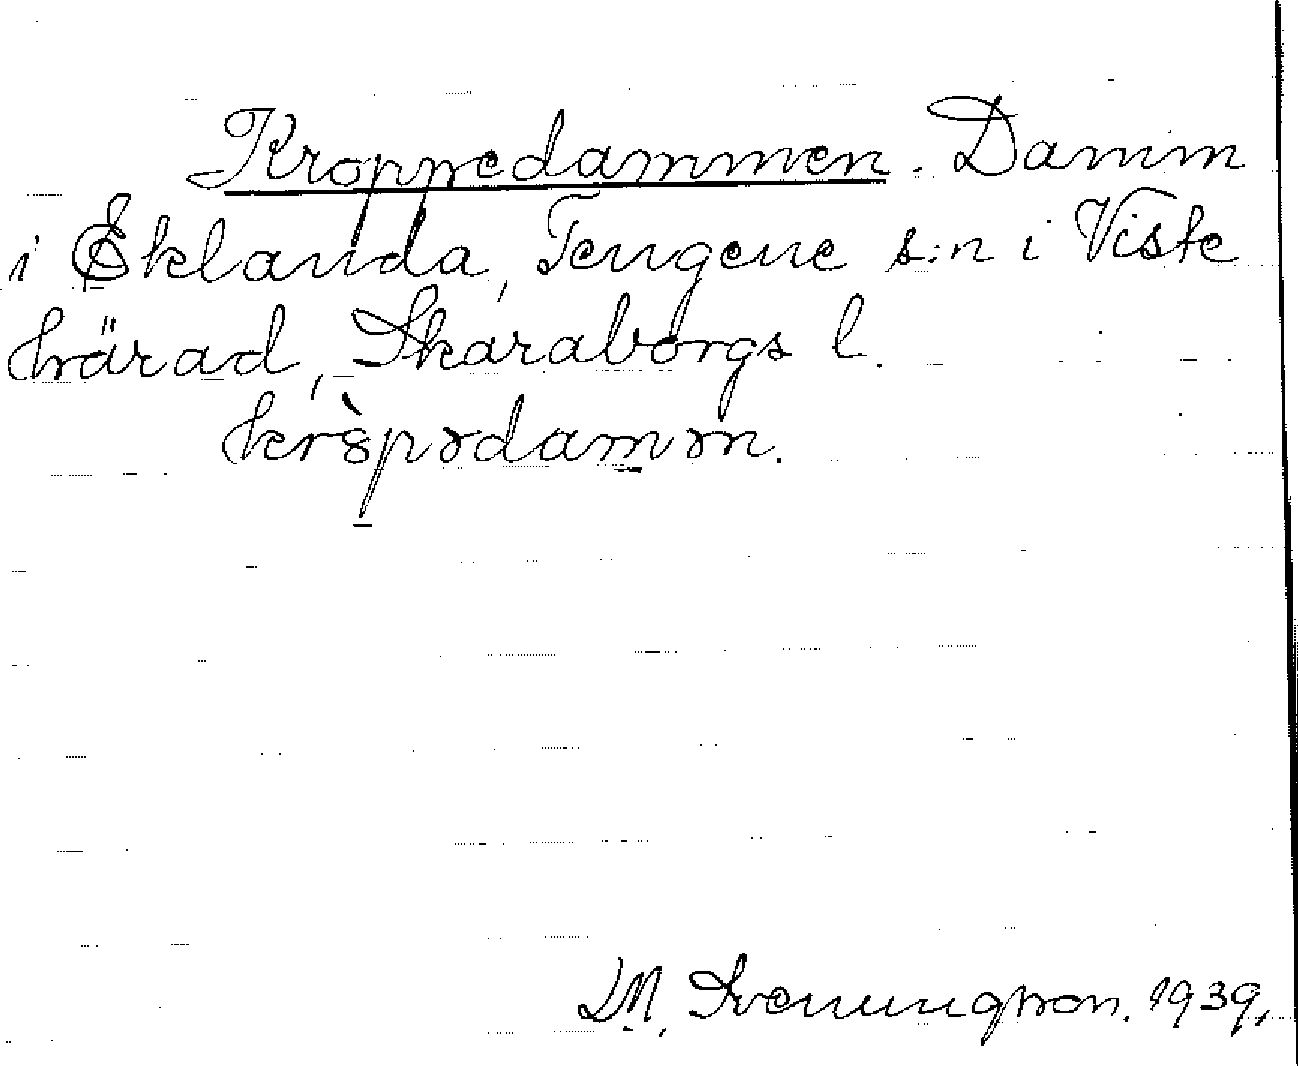 Kroppedammen. Damm
i Eklanda, Tengene s:n i Viste
härad, Skaraborgs l.
krɵ̀pədamən.
M. Svenungson. 1939.